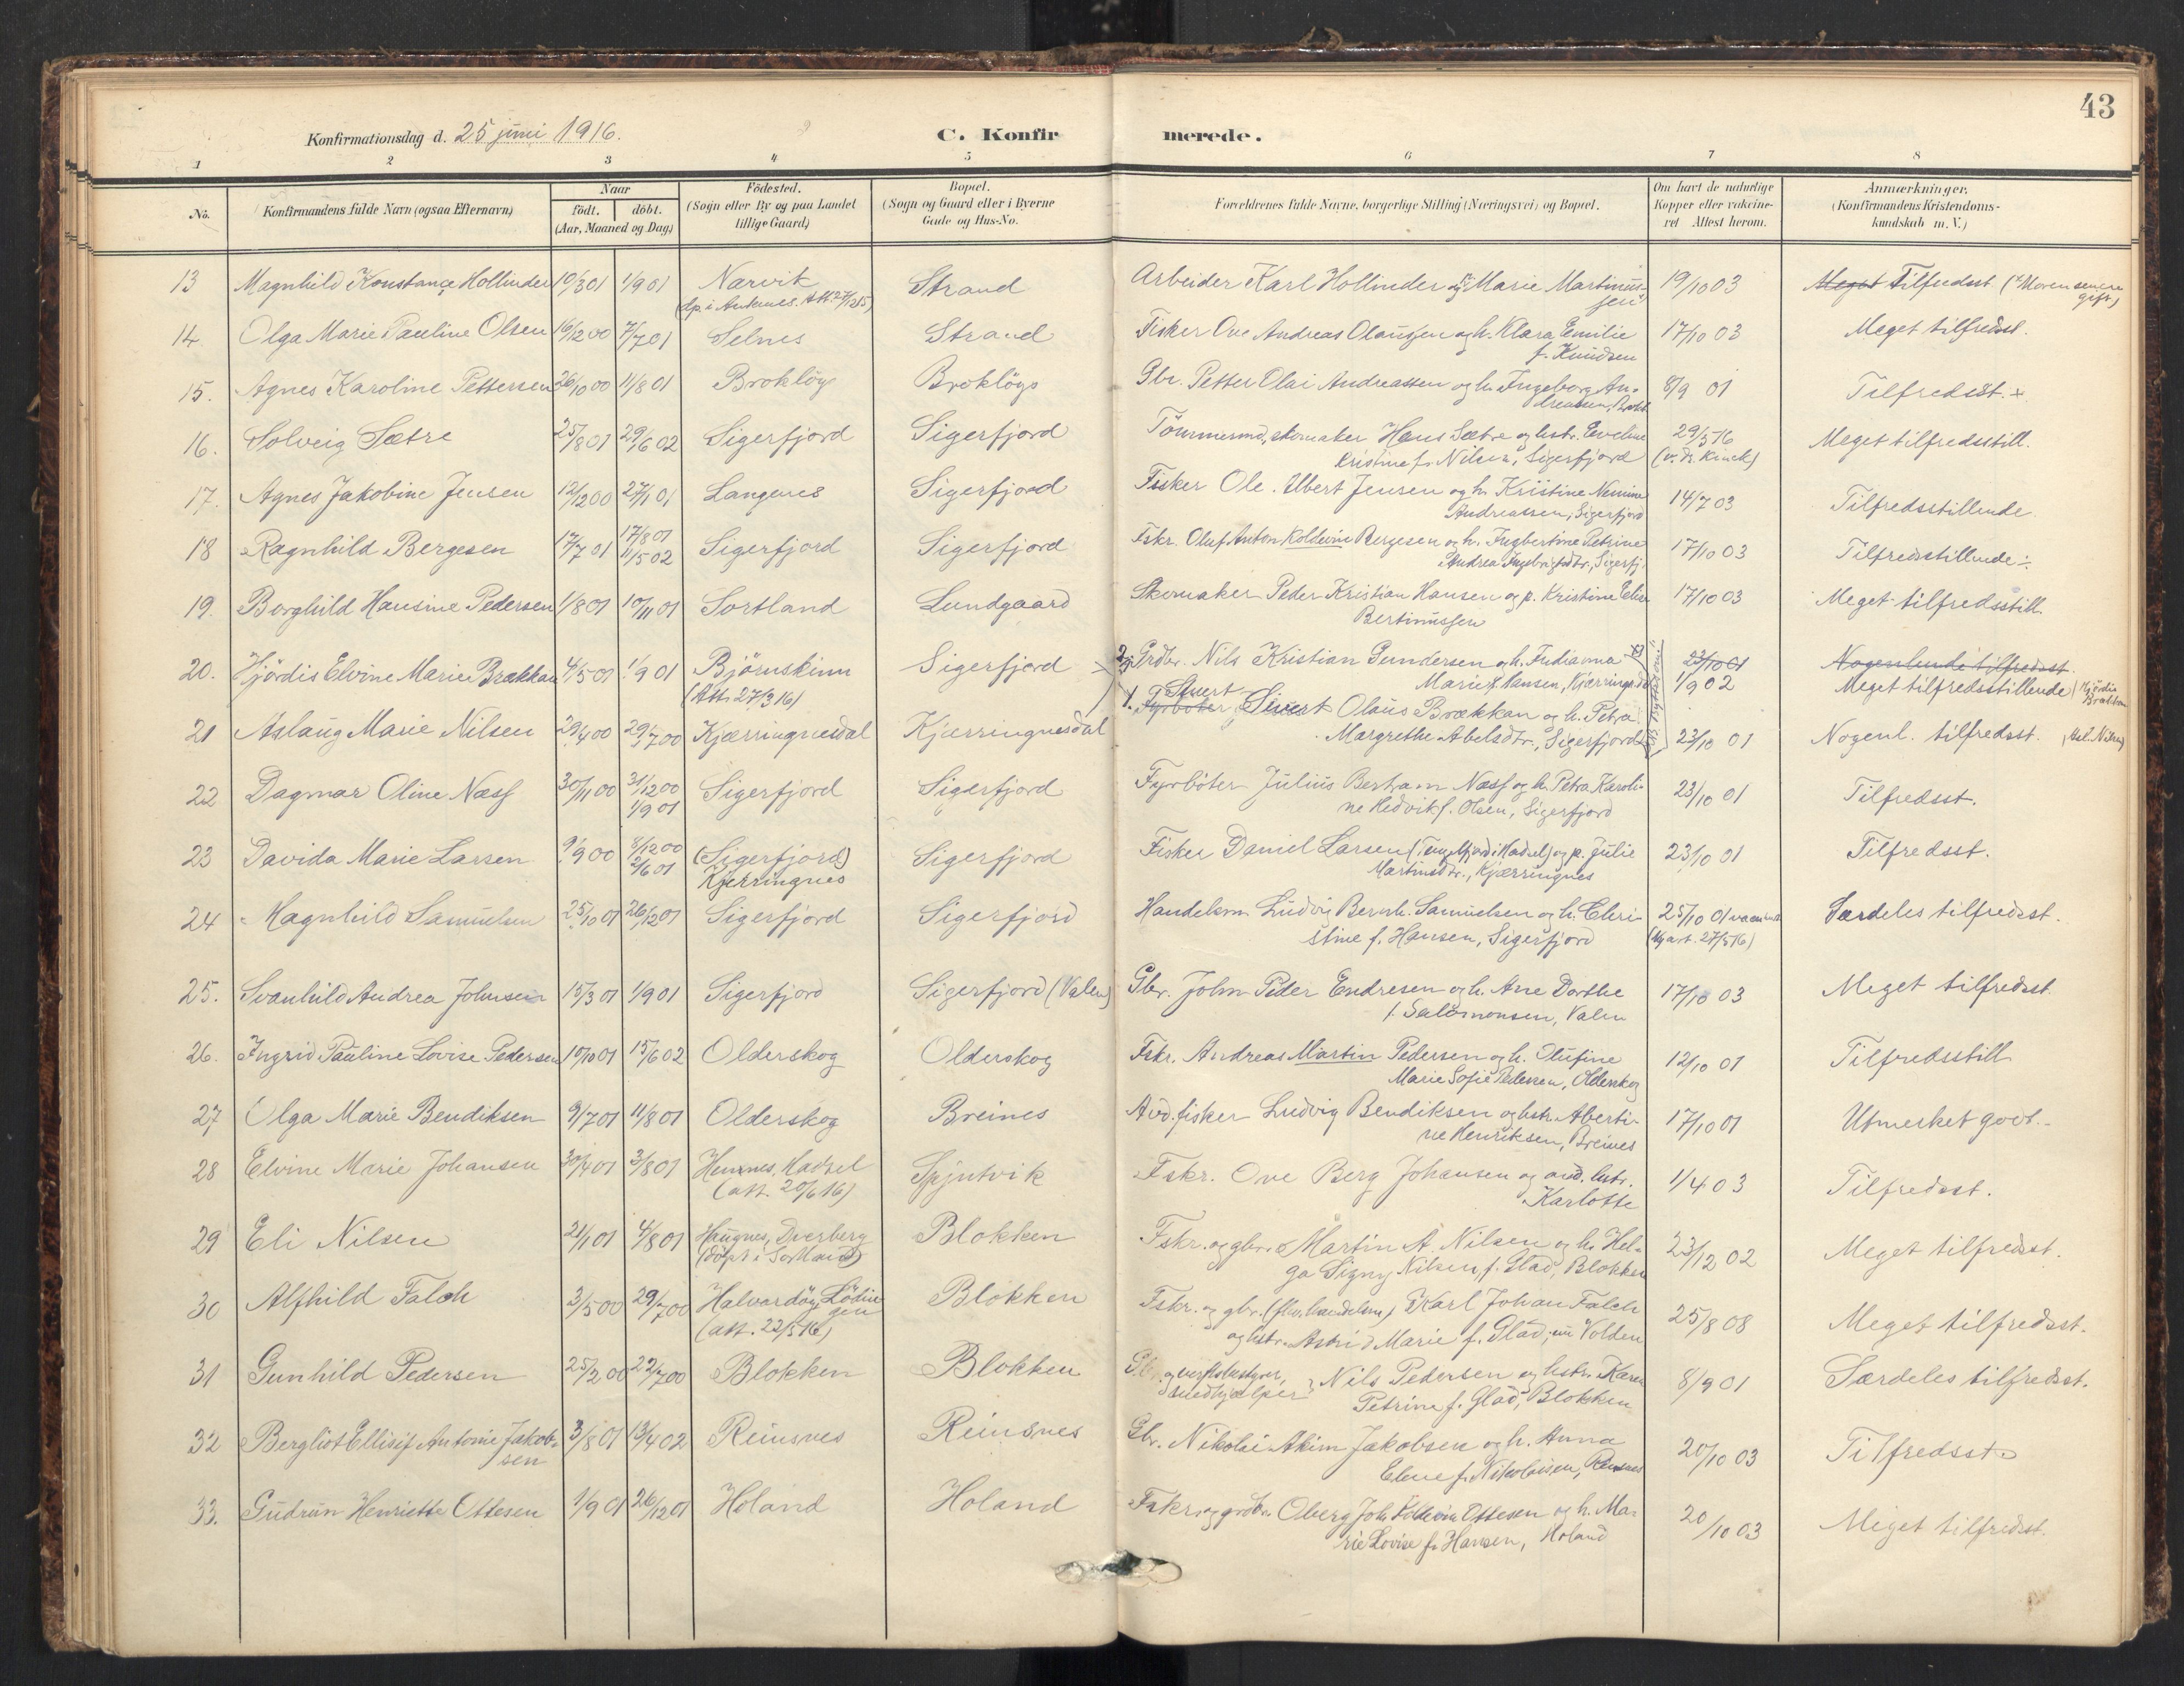 43
Konfirmationsdag d. 25 juni 1916.
C. Konfirmerede.
1 2 3 4 5 6 7 8
No.
Konfirmandens fulde Navn (ogsaa Efternavn)
Naar
født. døbt.
(Aar, Maaned og Dag)
Födested.
(Sogn eller By og paa Landet
tillige Gaard)
Bopæl.
(Sogn og Gaard eller i Byerne
Gade og Hus-No.
Forældrenes fulde Navne, borgerlige Stilling (Næringsvei) og Bopæl.
Om havt de naturlige
Kopper eller vakcine-
ret Attest herom.
Anmærkninger.
(Konfirmandens Kristendoms-
kundskab m. V.)
13 Magnhild Konstance Hollinder 10/3 01 1/9 01 Narvik Strand Arbeider Karl Hollinder og Marie Martinus- 19/10 03 Meget Tilfredsst. (Moren senere
(dp. i Andenes. Att. 27/2 15) sen gift)
14. Olga Marie Pauline Olsen 16/12 00 7/7 01 Selnes Strand Fisker Ove Andreas Olaussen og h. Klara Emilie 17/10 03 Meget tilfredsst.
f. Knudsen
15. Agnes Karoline Pettersen 26/10 00 11/8 01 Brokløys Brokløys Gbr. Petter Olai Andreassen og h. Ingeborg An- 8/9 01 Tilfredsst. +
dreassen, Brokl.
16. Solveig Sætre 25/8 01 29/6 02 Sigerfjord Sigerfjord Tömmermd, skomaker Hans Sætre og hstr. Eveline 29/5 16 Meget tilfredsstill.
Kristine f. Nilsen, Sigerfjord (v. dr. Kinck)
17. Agnes Jakobine Jensen 12/12 00 27/1 01 Langenes Sigerfjord Fisker Ole Albert Jensen og h. Kristine Nemine 14/7 03 Tilfredsstillende
Andreassen, Sigerfjord
18 Ragnhild Bergesen 17/7 01 17/8 01 Sigerfjord Sigerfjord Fskr. Oluf Anton Koldevin Bergesen og h. Ingbertine Petrine 17/10 03 Tilfredsstillende ÷
11/5 02 Andrea Ingebrigtsdtr., Sigerfj.
19. Borghild Hansine Pedersen 1/8 01 10/11 01 Sortland Lundgaard Skomaker Peder Kristian Hansen og p. Kristine Elise 17/10 03 Meget tilfredsstill.
Bertinussen
20. Hjördis Elvine Marie Brækkan 4/5 01 1/9 01 Bjørnskinn Sigerfjord 2) Grdbr. Nils Kristian Gundersen og h. Indianna 23/10 01 Nogenlunde tilfredsst.
(Att. 27/3 16) Marie f. Hansen, Kjærringnesd. 1/9 02 Meget tilfredsstillende (Hjördis
Brækkan
1. Stuert
21 Aslaug Marie Nilsen 29/4 00 29/7 00 Kjærringnesdal Kjærringnesdal Fyrböter Sivert Olaus Brækkan og h. Petra
Margrethe Abelsdtr., Sigerfjord 23/10 01 Nogenl. tilfredsst. (Asl. Nilsen)
22 Dagmar Oline Næss 30/11 00 31/12 00 Sigerfjord Sigerfjord Fyrböter Julius Bertram Næss og h. Petra Karoli- 23/10 01 Tilfredsst.
1/9 01 ne Hedvik f. Olsen, Sigerfjord
23 Davida Marie Larsen 9/9 00 8/12 00 (Sigerfjord) Sigerfjord Fisker Daniel Larsen og p. Julie 23/10 01 Tilfredsst.
2/6 01 Kjærringnes Martinsdtr., Kjærringnes
24 Magnhild Samuelsen 25/10 01 26/12 01 Sigerfjord Sigerfjord Handelsm. Ludvig Bernh. Samuelsen og h. Chri- 25/10 01 Særdeles tilfredsst.
stine f. Hansen, Sigerfjord (Ny att. 27/5 16)
25. Svanhild Andrea Johnsen 15/3 01 1/9 01 Sigerfjord Sigerfjord (Valen) Gbr. John Peder Endresen og h. Ane Dorthe 17/10 03 Meget tilfredsst.
f. Salomonsen, Valen
26. Ingrid Pauline Lovise Pedersen 10/10 01 15/6 02 Olderskog Olderskog Fskr. Andreas Martin Pedersen og h. Olufine 12/10 01 Tilfredsstill
Marie Sofie Pedersen, Olderskog
27 Olga Marie Bendiksen 9/7 01 11/8 01 Olderskog Breines Avd. fisker Ludvig Bendiksen og hstr. Aberti- 17/10 01 Utmerket godt.
ne Henriksen, Breines
28 Elvine Marie Johansen 30/4 01 3/8 01 Hennes, Hadsel Spjutvik Fskr. Ove Berg Johansen og avd. hstr. 1/4 03 Tilfredsst.
(att. 20/6 16) Karlotte
29 Eli Nilsen 21/1 01 4/8 01 Haugnes, Dverberg Blokken Fskr. og gbr. Martin A. Nilsen og h. Hel- 23/12 02 Meget tilfredsst.
(døpt i Sortland) ga Signy Nilsen, f. Glad, Blokken
30 Alfhild Falch 3/5 00 29/7 00 Halvardöy, Lödin Blokken Fskr. og gbr. (fhv. handelsm) Karl Johan Falch 25/8 08 Meget tilfredsst.
gen
(att. 22/5 16) og hstr. Astrid Marie f. Glad, Volden
31 Gunhild Pedersen 25/2 00 22/7 00 Blokken Blokken Gbr. og verksbestyrer, Nils Pedersen og hstr. Karen 8/9 01 Særdeles tilfredsst.
medhjælper Petrine f. Glad, Blokken
32 Bergliot Ellisif Antonie Jakob- 3/8 01 13/4 02 Reinsnes Reinsnes Gbr. Nikolai Akim Jakobsen og h. Anna 20/10 03 Tilfredsst.
sen Elene f. Nikolaisen, Reinsnes
33. Gudrun Henriette Ottesen 1/9 01 26/12 01 Holand Holand Fskr. og grdbr. Oberg Joh. Koldevin Ottesen og h. Ma- 20/10 03 Meget tilfredsst.
rie Lovise f. Hansen, Holand